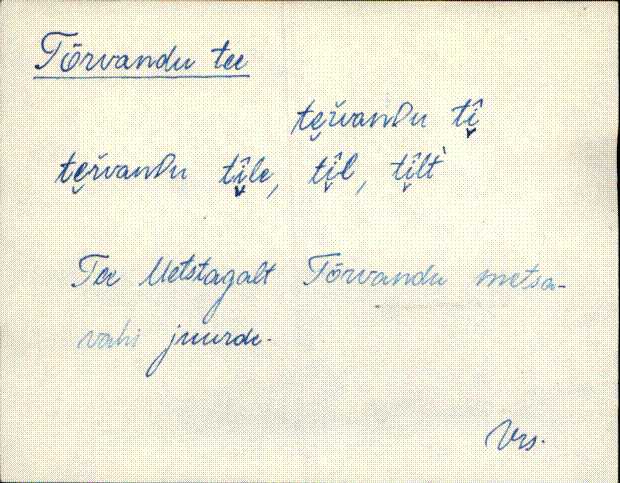 Tõrvandu tee
te̮r̆vanᴅu tî̬
te̮r̆vanᴅu tî̬le, tî̬l, tî̬lt'
Tee Metstagalt Tõrvandu metsa-
vahi juurde.
Vrs.